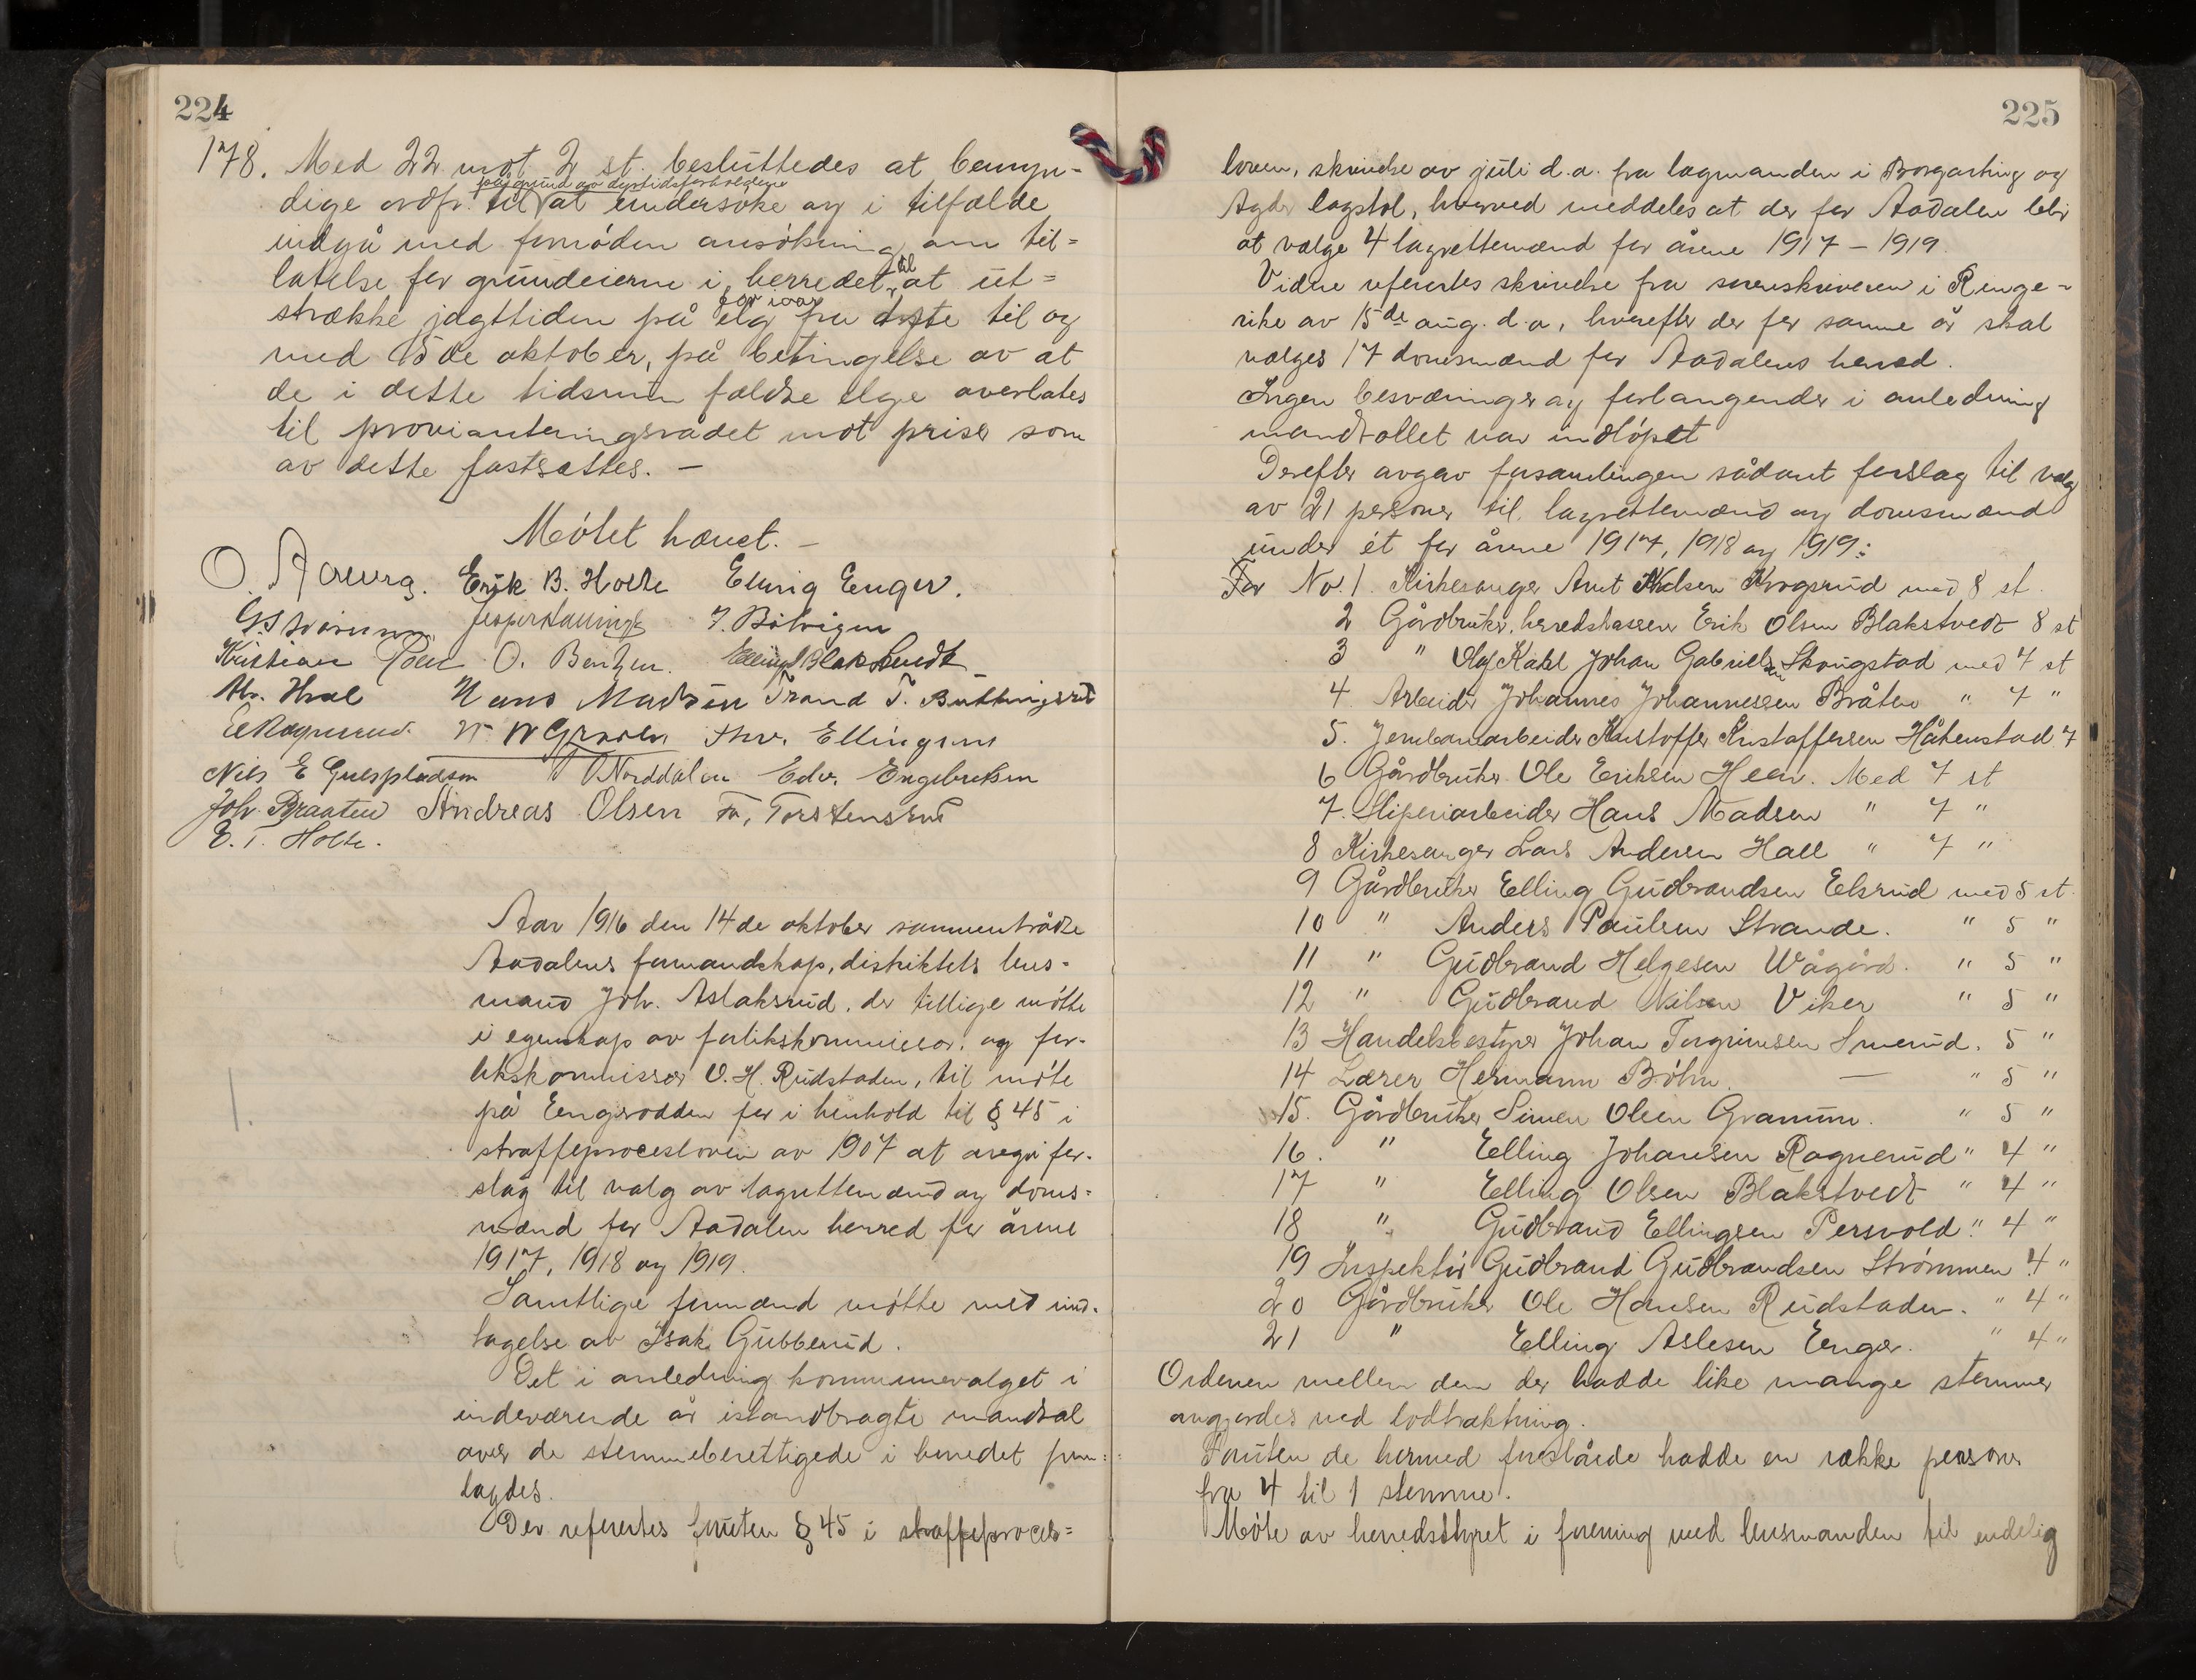 224
178. Med 22 mot 2 st. besluttedes at bemyn-
på grund av dyrtidsforholdene
dige ordf. til at undersøke og i tilfælde
indgå med fornøden ansøkning om til=
latelse for grundeierne i herredet til at ut=
for iaar
strække jagttiden på elg fra dette til og
med 15de oktober, på betingelse av at
de i dette tidsrum fældte elge overlates
til provianteringsrådet mot priser som
av dette fastsættes. —
Møtet hævet. —
O. Erik B. Holte Elling Enger.
Jesper
Kristian O. Bentzen. Elling Blakstvedt
Hans Madsen Trand T. Buttingsrud
E Ragnerud. Thv. Ellingsen
Nils E Norddalen Edv. Engebretsen
Joh. Braaten Andreas Olsen Fr. Torstensrud
E. T. Holte.
Aar 1916 den 14de oktober sammentrådte
Aadalens formandskap, distriktets lens-
mand Joh. Aslaksrud, der tillige møtte
i egenskap av forlikskommissær, og for-
likskommissær O. H. Rudstaden, til møte
på Engerodden for i henhold til § 45 i
straffeprocesloven av 1907 at avgi for-
slag til valg av lagrettemænd og doms=
mænd for Aadalen herred for årene
1917, 1918 og 1919.
Samtlige formænd møtte med und-
tagelse av Isak Gubberud.
Det i anledning kommunevalget i
indeværende år istandbragte mandtal
over de stemmeberettigede i herredet frem=
lagdes.
Der refertes foruten § 45 i straffeproces=
225
loven, skrivelse av juli d.a. fra lagmanden i Borgarting og
Agder lagstol, hvorved meddeles at der for Aadalen blir
at vælge 4 lagrettemænd for årene 1917 – 1919.
Vidre refertes skrivelse fra sorenskriveren i Ringe-
rike av 15de aug. d.a, hvorefter der for samme år skal
vælges 17 domsmænd for Aadalens herred.
Ingen besværinger og forlangender i anledning
mandtallet var indløpet
Derefter avgav forsamlingen sådant forslag til valg
av 21 personer til lagrettemænd og domsmænd
under ét for årene 1917, 1918 og 1919:
For No. 1. Kirkesanger Amt Nielsen Krogsrud med 8 st.
2 Gårdbruker, herredskasserer Erik Olsen Blakstvedt 8 st
3 " Olaf Karl Johan Gabrielsen Skougstad med 7 st
4. Arbeider Johannes Johannessen Bråten " 7 "
5. Jernbanearbeider Kristoffer Kristoffersen Håkenstad 7
6 Gårdbruker Ole Eriksen Heen. Med 7 st
7. Sliperiarbeider Hans Madsen " 7 "
8 Kirkesanger Lars Andersen Hall " 7 "
9 Gårdbruker Elling Gudbrandsen Elsrud med 5 st.
10 " Anders Paulsen Strande. " 5 "
11 " Gudbrand Helgesen Wågård. " 5 "
12 " Gudbrand Nilsen Viker " 5 "
13 Handelsbestyrer Johan Torgrimsen Smerud. 5 "
14 Lærer Hermann Bøhn. — " 5 "
15. Gårdbruker Simen Olsen Granum. " 5 "
16. " Elling Johansen Ragnerud " 4 "
17 " Elling Olsen Blakstvedt " 4 "
18 " Gudbrand Ellingsen Persvold " 4 "
19 Inspektør Gudbrand Gudbrandsen Strømmen 4 "
20 Gårdbruker Ole Hansen Rudstaden. " 4 "
21 " Elling Aslesen Enger. " 4 "
Ordenen mellem dem der hadde like mange stemmer
avgjordes ved lodtrækning.
Foruten de hermed foreslåede hadde en række personer
fra 4 til 1 stemme.
Møte av herredsstyret i forening med lensmanden til endelig